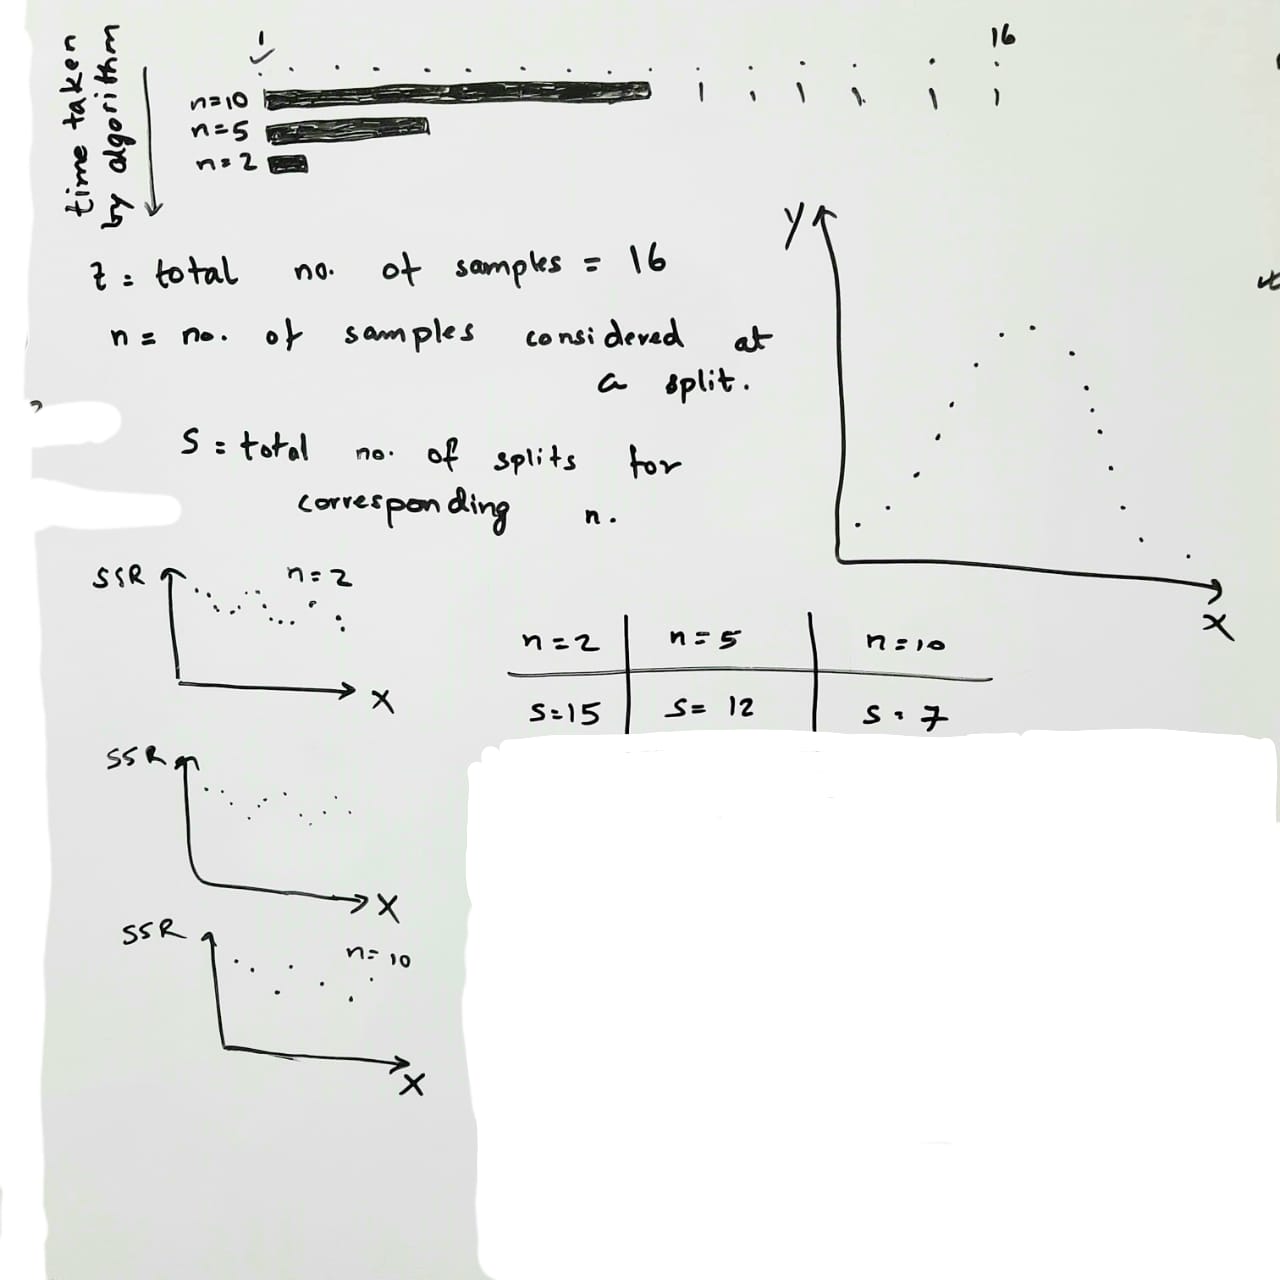 time taken
by algorithm
1
16
n=10
n=5
n=2
Z = total no. of samples = 16
n = no. of samples considered at
a split.
S = total no. of splits for
corresponding n.
Y
X
SSR
n=2
X
n=2 n=5 n=10
S=15 S=12 S=7
SSR
X
SSR
n=10
X